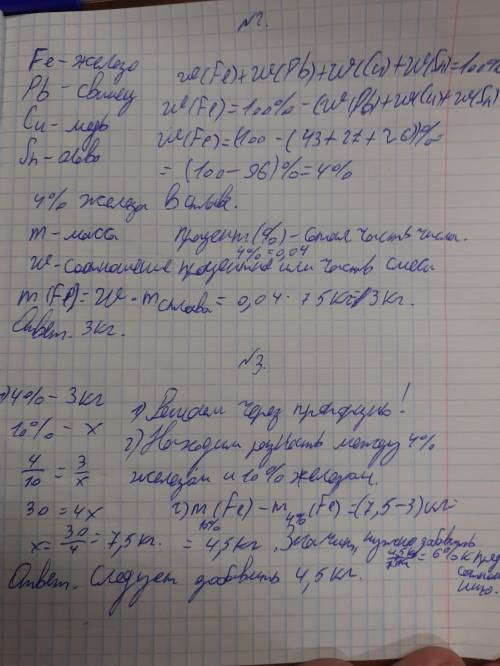 №2.
Fe - железо
w(Fe)+w(Pb)+w(Cu)+w(Sn)=100%
Pb - свинец
w(Fe)=100% - (w(Pb)+w(Cu)+w(Sn)
Cu - медь
w(Fe)=(100 - (43+27+26))%=
Sn - олово
= (100-96)%=4%
4% железа в сплаве.
m - масса
процент (%) - сотая часть числа.
4%=0,04
w - соотношение или часть смеси
m(Fe)=w · m сплава = 0,04 · 75кг = 3кг.
Ответ. 3кг.
№3.
1) 4% - 3кг
10% - x
1) Решаем через пропорцию!
2) Находим разность между 4%
железом и 10% железом.
4/10 = 3/x
30=4x
2) m 10% (Fe) - m 4% (Fe) = (7,5-3) кг=
x= 30/4 = 7,5кг.
= 4,5кг. Значит, нужно добавить
= 6% к
Ответ. Следует добавить 4,5кг.